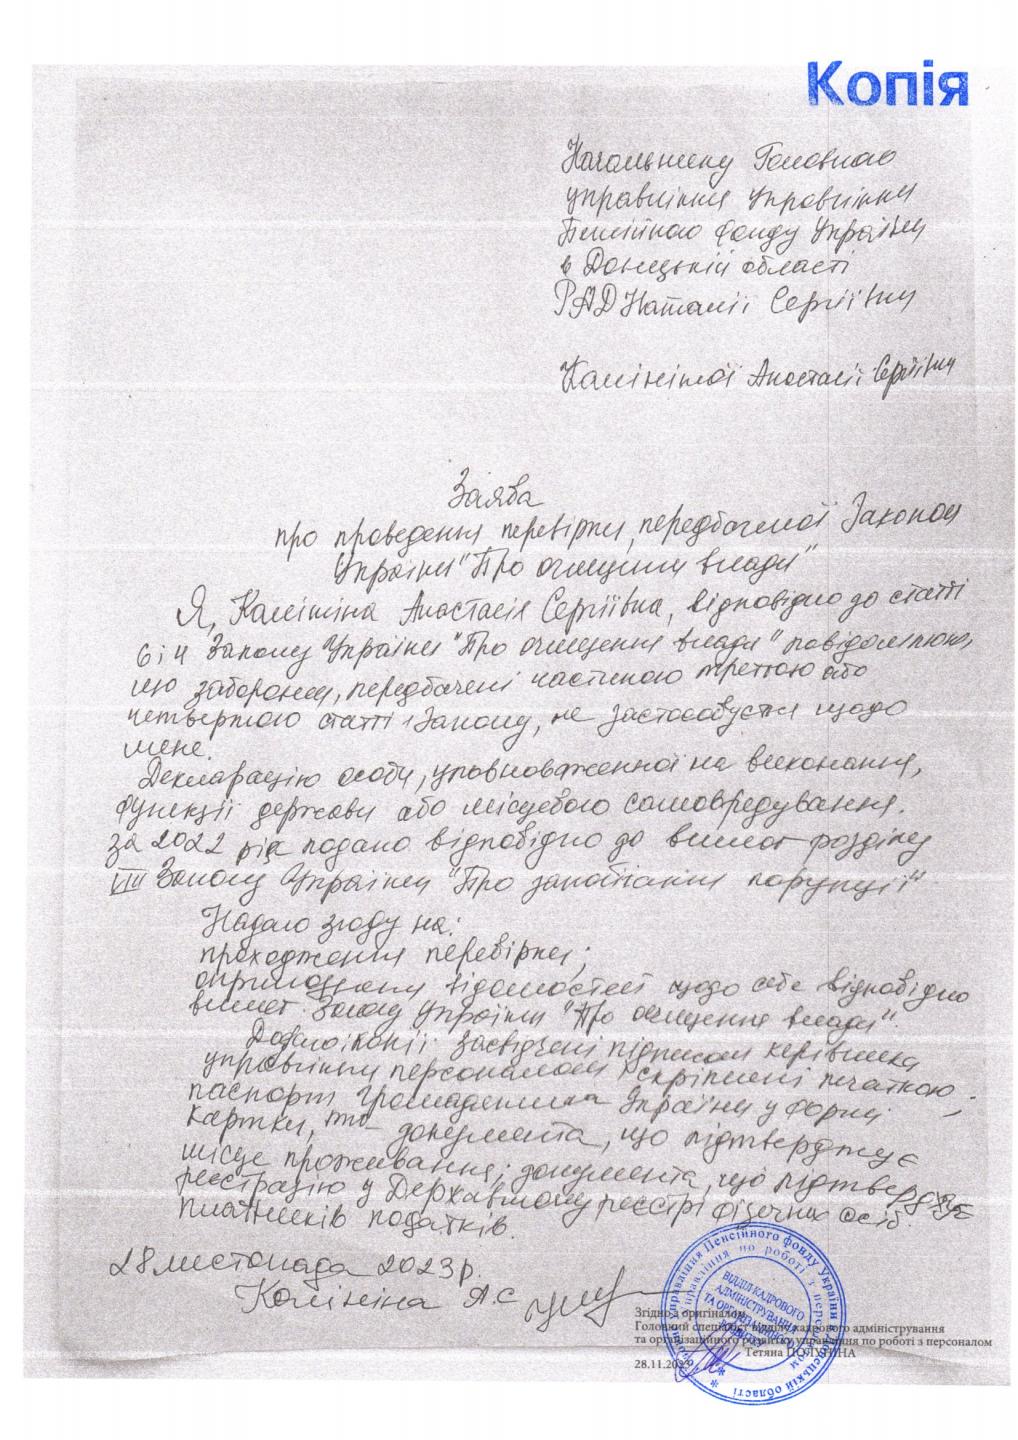 Копія
Начальнику Головного
управління Управління
Пенсійного фонду України
в Донецькій області
РАД Наталії Сергіївни
Калініної Анастасії Сергіївни
Заява
про проведення перевірки, передбаченої Законом
України "Про очищення влади"
Я, Калініна Анастасія Сергіївна, відповідно до статті
6 і 4 Закону України "Про очищення влади" повідомляю,
що заборони, передбачені частиною третьою або
четвертою статті 1 Закону, не застосовується щодо
мене.
Декларацію особи, уповноваженої на виконання,
функції держави або місцевого самоврядування.
за 2022 рік подано відповідно до вимог розділу
VII Закону України "Про запобігання корупції"
Надаю згоду на:
проходження перевірки;
оприлюднення відомостей щодо себе відповідно
вимог Закону України "Про очищення влади"
Додаю копії засвідчені підписом керівника
управління персоналом і скріплені печаткою;
паспорт громадянина України у формі
картки, та документа, що підтверджує
місце проживання; документа, що підтверджує
реєстрацію у Державному реєстрі фізичних осіб
платників податків.
28 листопада 2023 р.
Калініна А.С
Згідно з оригіналом
Головний спеціаліст відділу кадрового адміністрування
та організаційного розвитку управління по роботі з персоналом
Тетяна ПОЛУНІНА
28.11.2023
ВІДДІЛ КАДРОВОГО
АДМІНІСТРУВАННЯ
ТА ОРГАНІЗАЦІЙНОГО